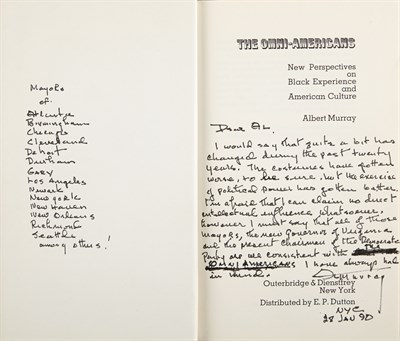 Mayors
of:
Atlanta
Birmingham
Chicago
Cleveland
Detroit
Durham
Gary
Los Angeles
Newark
New York
New Haven
New Orleans
Richmond
Seattle
among others!
THE OMNI-AMERICANS
New Perspectives
on
Black Experience
and
American Culture
Albert Murray
Dear
I would say that quite a bit has
changed during the past twenty
years. The costumes have gotten
worse, to be sure. but the exercise
of political power has gotten better.
I'm afraid that I can claim no direct
intellectual influence whatsoever.
However, I must say that all of those
Mayors, the new Governor of Virginia
and the present chairman of the Democratic
Party are consistent with the
Omni Americans I have always had
in mind.
Murray
Outerbridge & Dienstfrey
New York
Distributed by E. P. Dutton
NYC
28 JAN 90